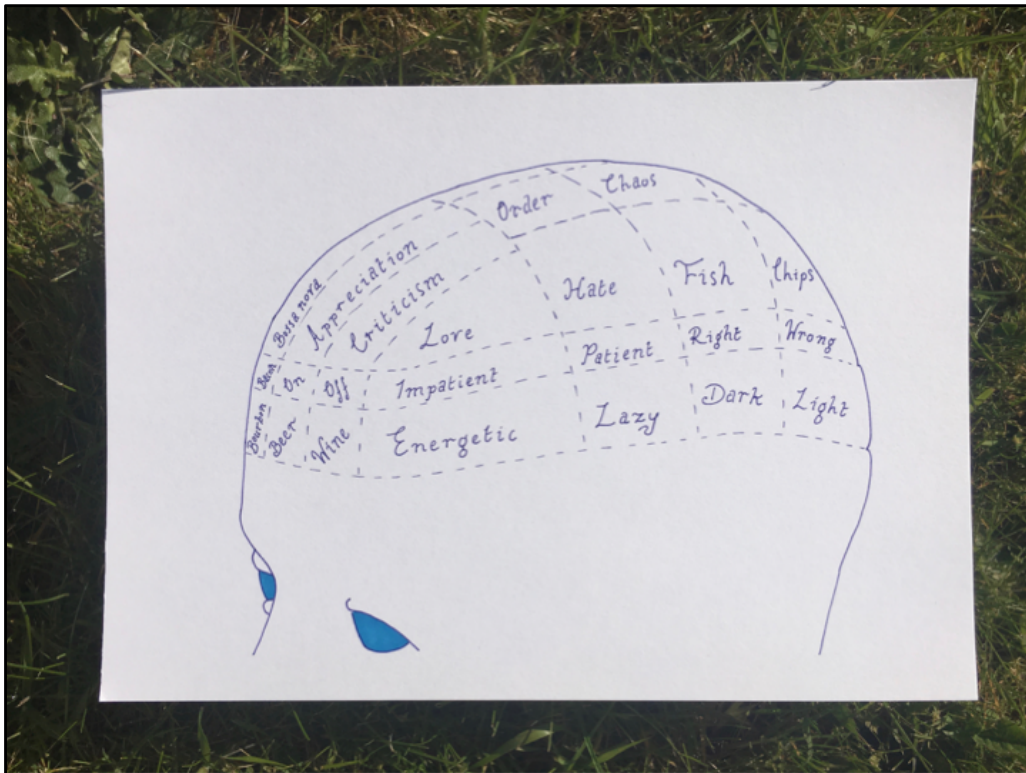 Order
Chaos
Bossa nova
Appreciation
Criticism
Love
Hate
Fish
Chips
On
Off
Impatient
Patient
Right
Wrong
Bourbon
Beer
Wine
Energetic
Lazy
Dark
Light